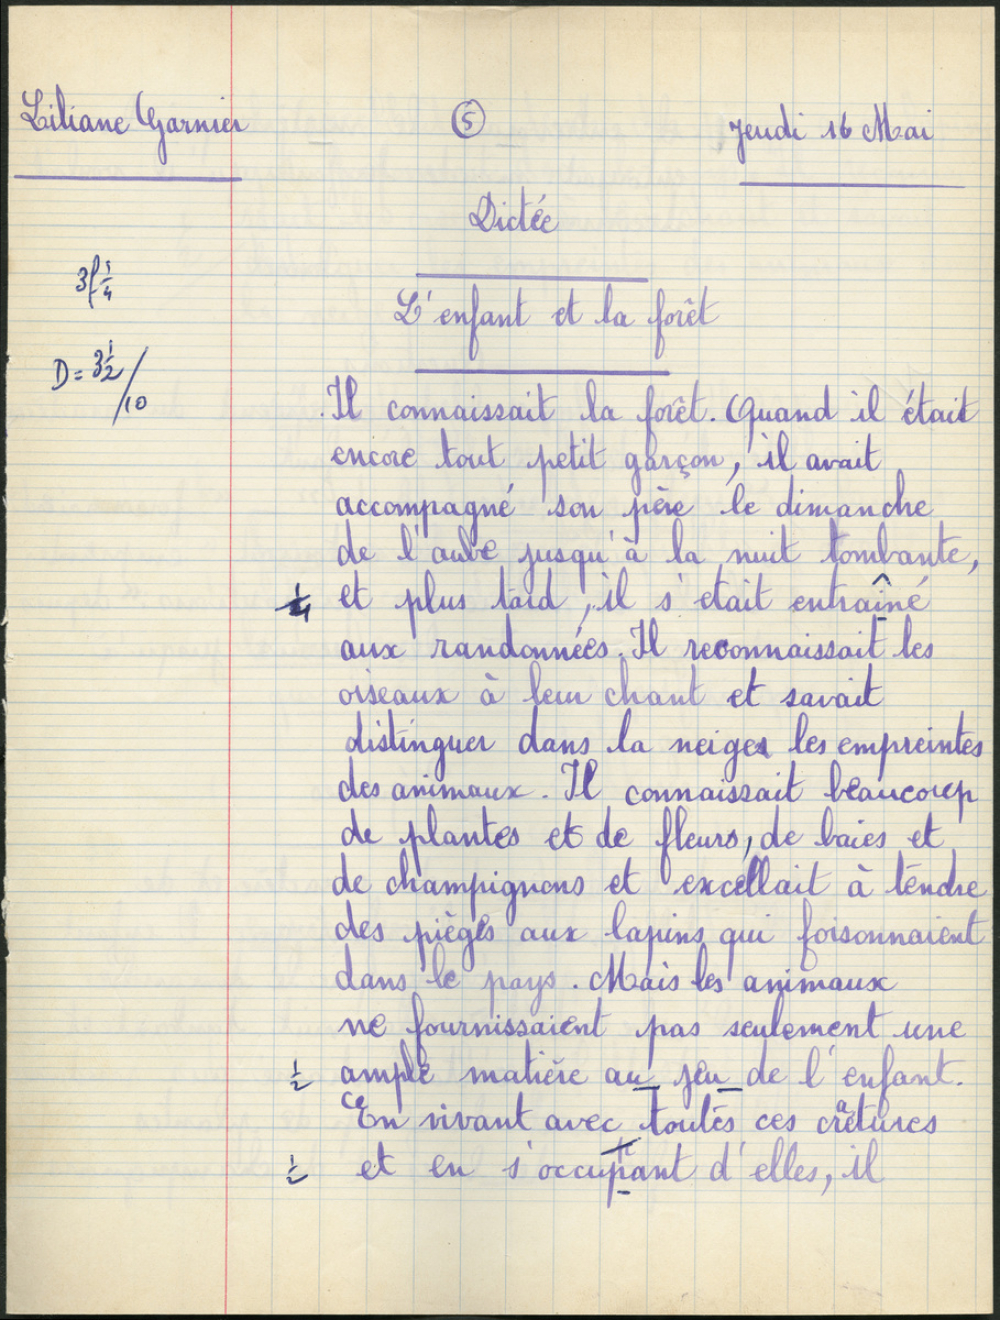 Liliane Garnier
5
Jeudi 16 Mai
Dictée
3f 1/4
L'enfant et la forêt
D = 3 1/2 / 10
Il connaissait la forêt. Quand il était
encore tout petit garçon, il avait
accompagné son père le dimanche
de l'aube jusqu'à la nuit tombante,
1/4 et plus tard, il s'etait entraîné
aux randonnées. Il reconnaissait les
oiseaux à leur chant et savait
distinguer dans la neige les empreintes
des animaux. Il connaissait beaucoup
de plantes et de fleurs, de baies et
de champignons et excellait à tendre
des pièges aux lapins qui foisonnaient
dans le pays. Mais les animaux
ne fournissaient pas seulement une
1/2 ample matière au jeu de l'enfant.
En vivant avec toutes ces créatures
1/2 et en s'occupant d'elles, il